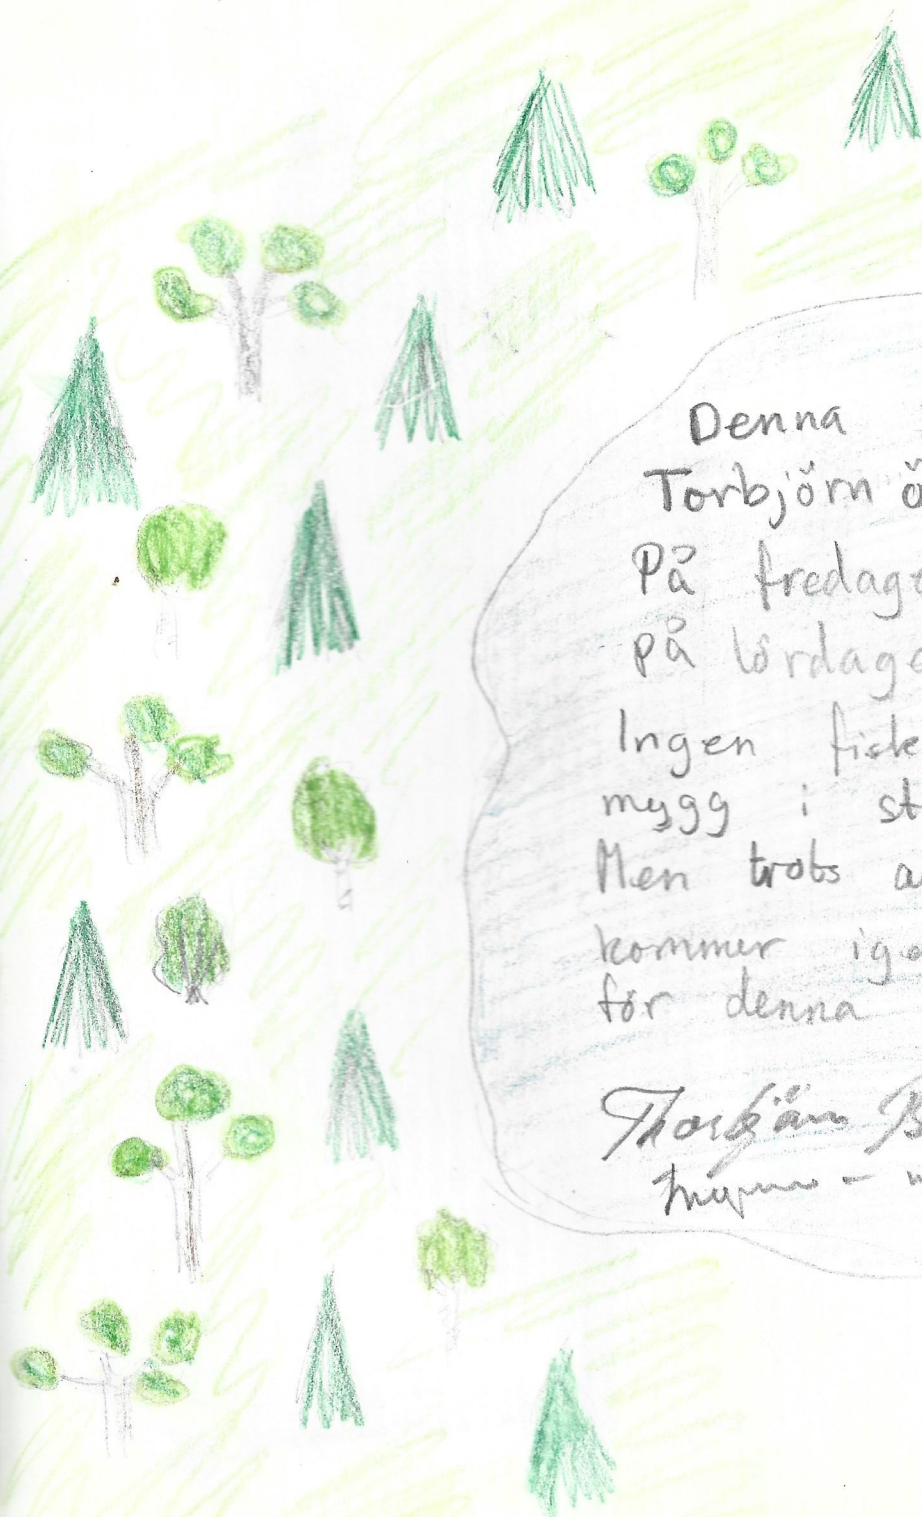 Denna
Torbjörn ö
På fredag
på lördage
Ingen fiske
mygg i st
Men trots a
kommer ige
för denna
Thorbjörn B